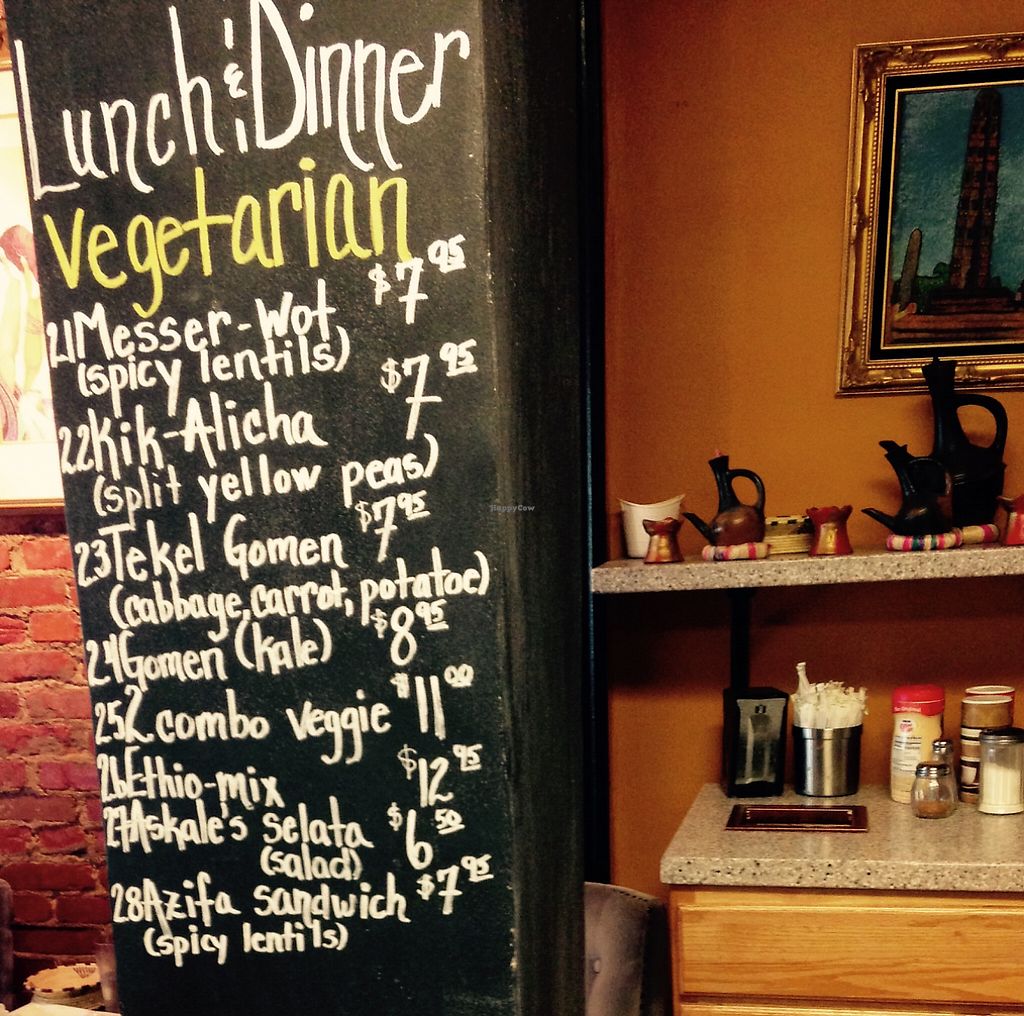 Lunch & Dinner
Vegetarian
21 Messer-Wot $7.95
(spicy lentils)
22 Kik-Alicha $7.95
(split yellow peas)
23 Tekel Gomen $7.95
(cabbage, carrot, potatoe)
24 Gomen (kale) $8.95
25 2 combo veggie $11.00
26 Ethio-mix $12.95
27 Askale's selata $6.50
(salad)
28 Azifa sandwich $7.95
(spicy lentils)
HappyCow